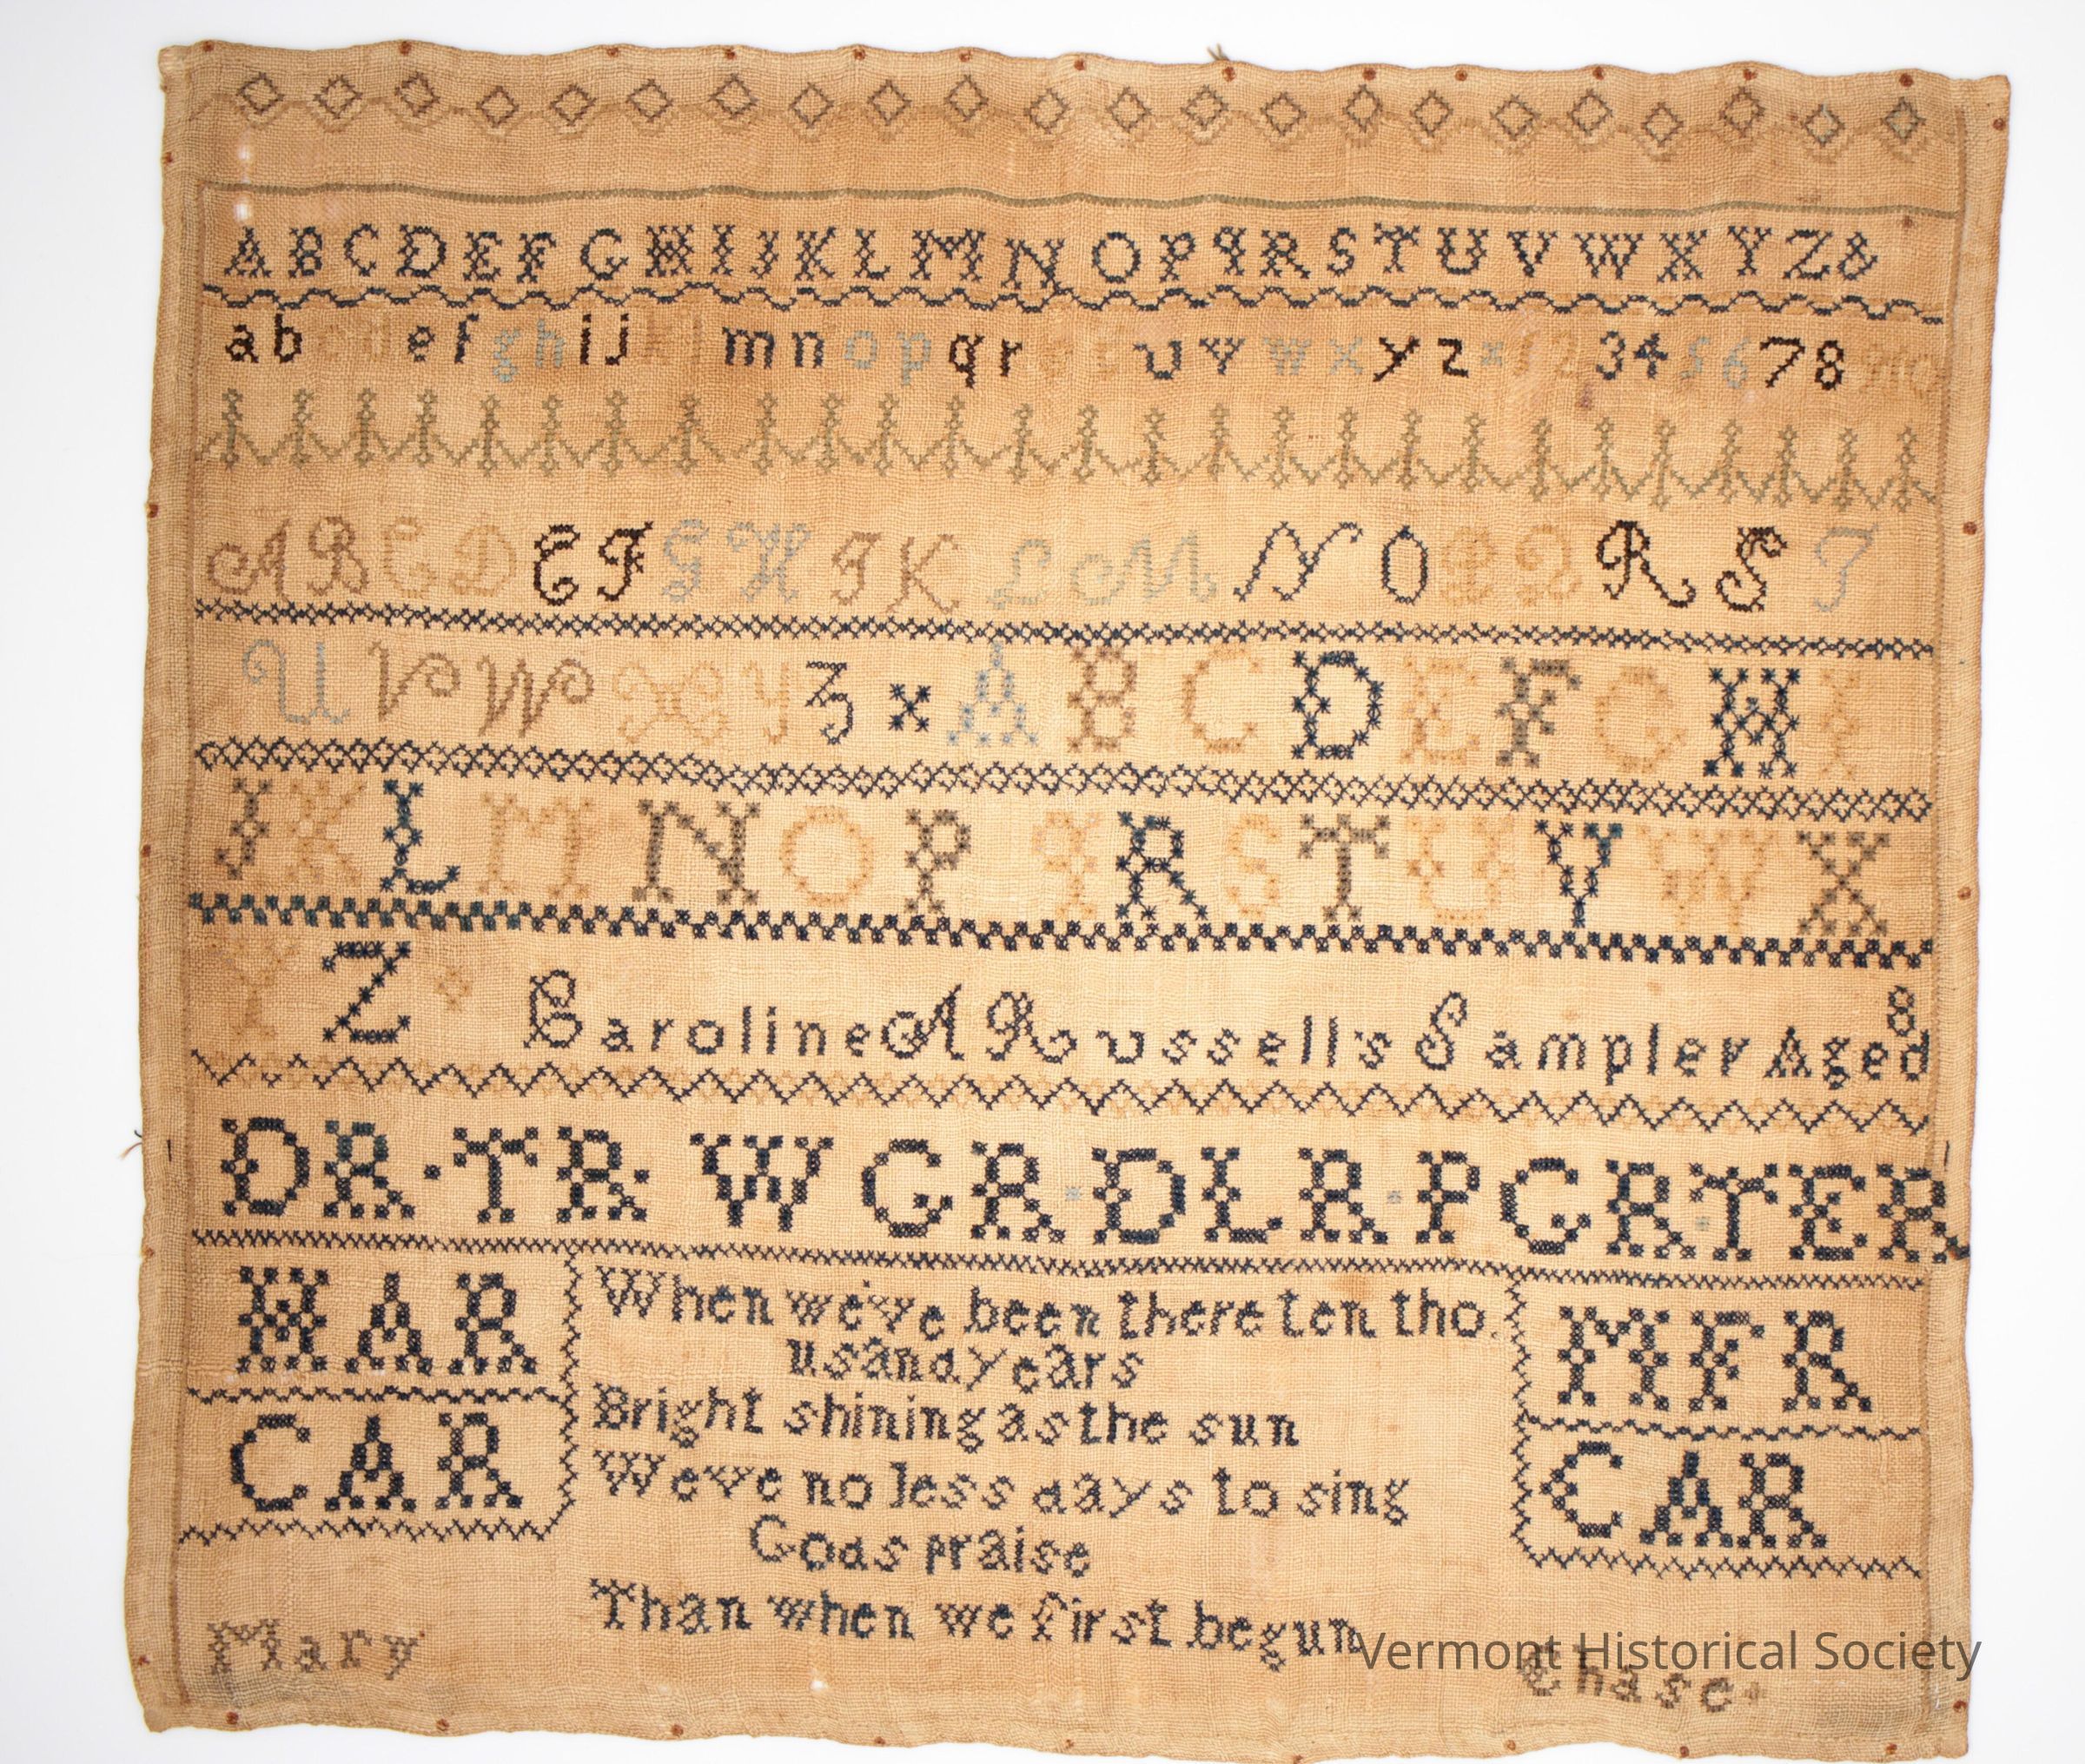 A B C D E F G H I J K L M N O P Q R S T U V W X Y Z &
a b c d e f g h i j k l m n o p q r s t u v w x y z 1 2 3 4 5 6 7 8 9 10
A B C D E F G H I K L M N O P Q R S T
U V W X Y Z A B C D E F G H I
J K L M N O P Q R S T U V W X
Y Z Caroline A Russell's Sampler Aged 8
DR · TR · WGR · DLR · PGR · TER
HAR
CAR
When we've been there ten tho
usand years
Bright shining as the sun
We've no less days to sing
Gods praise
Than when we first begun
MFR
CAR
Mary
Chase
Vermont Historical Society